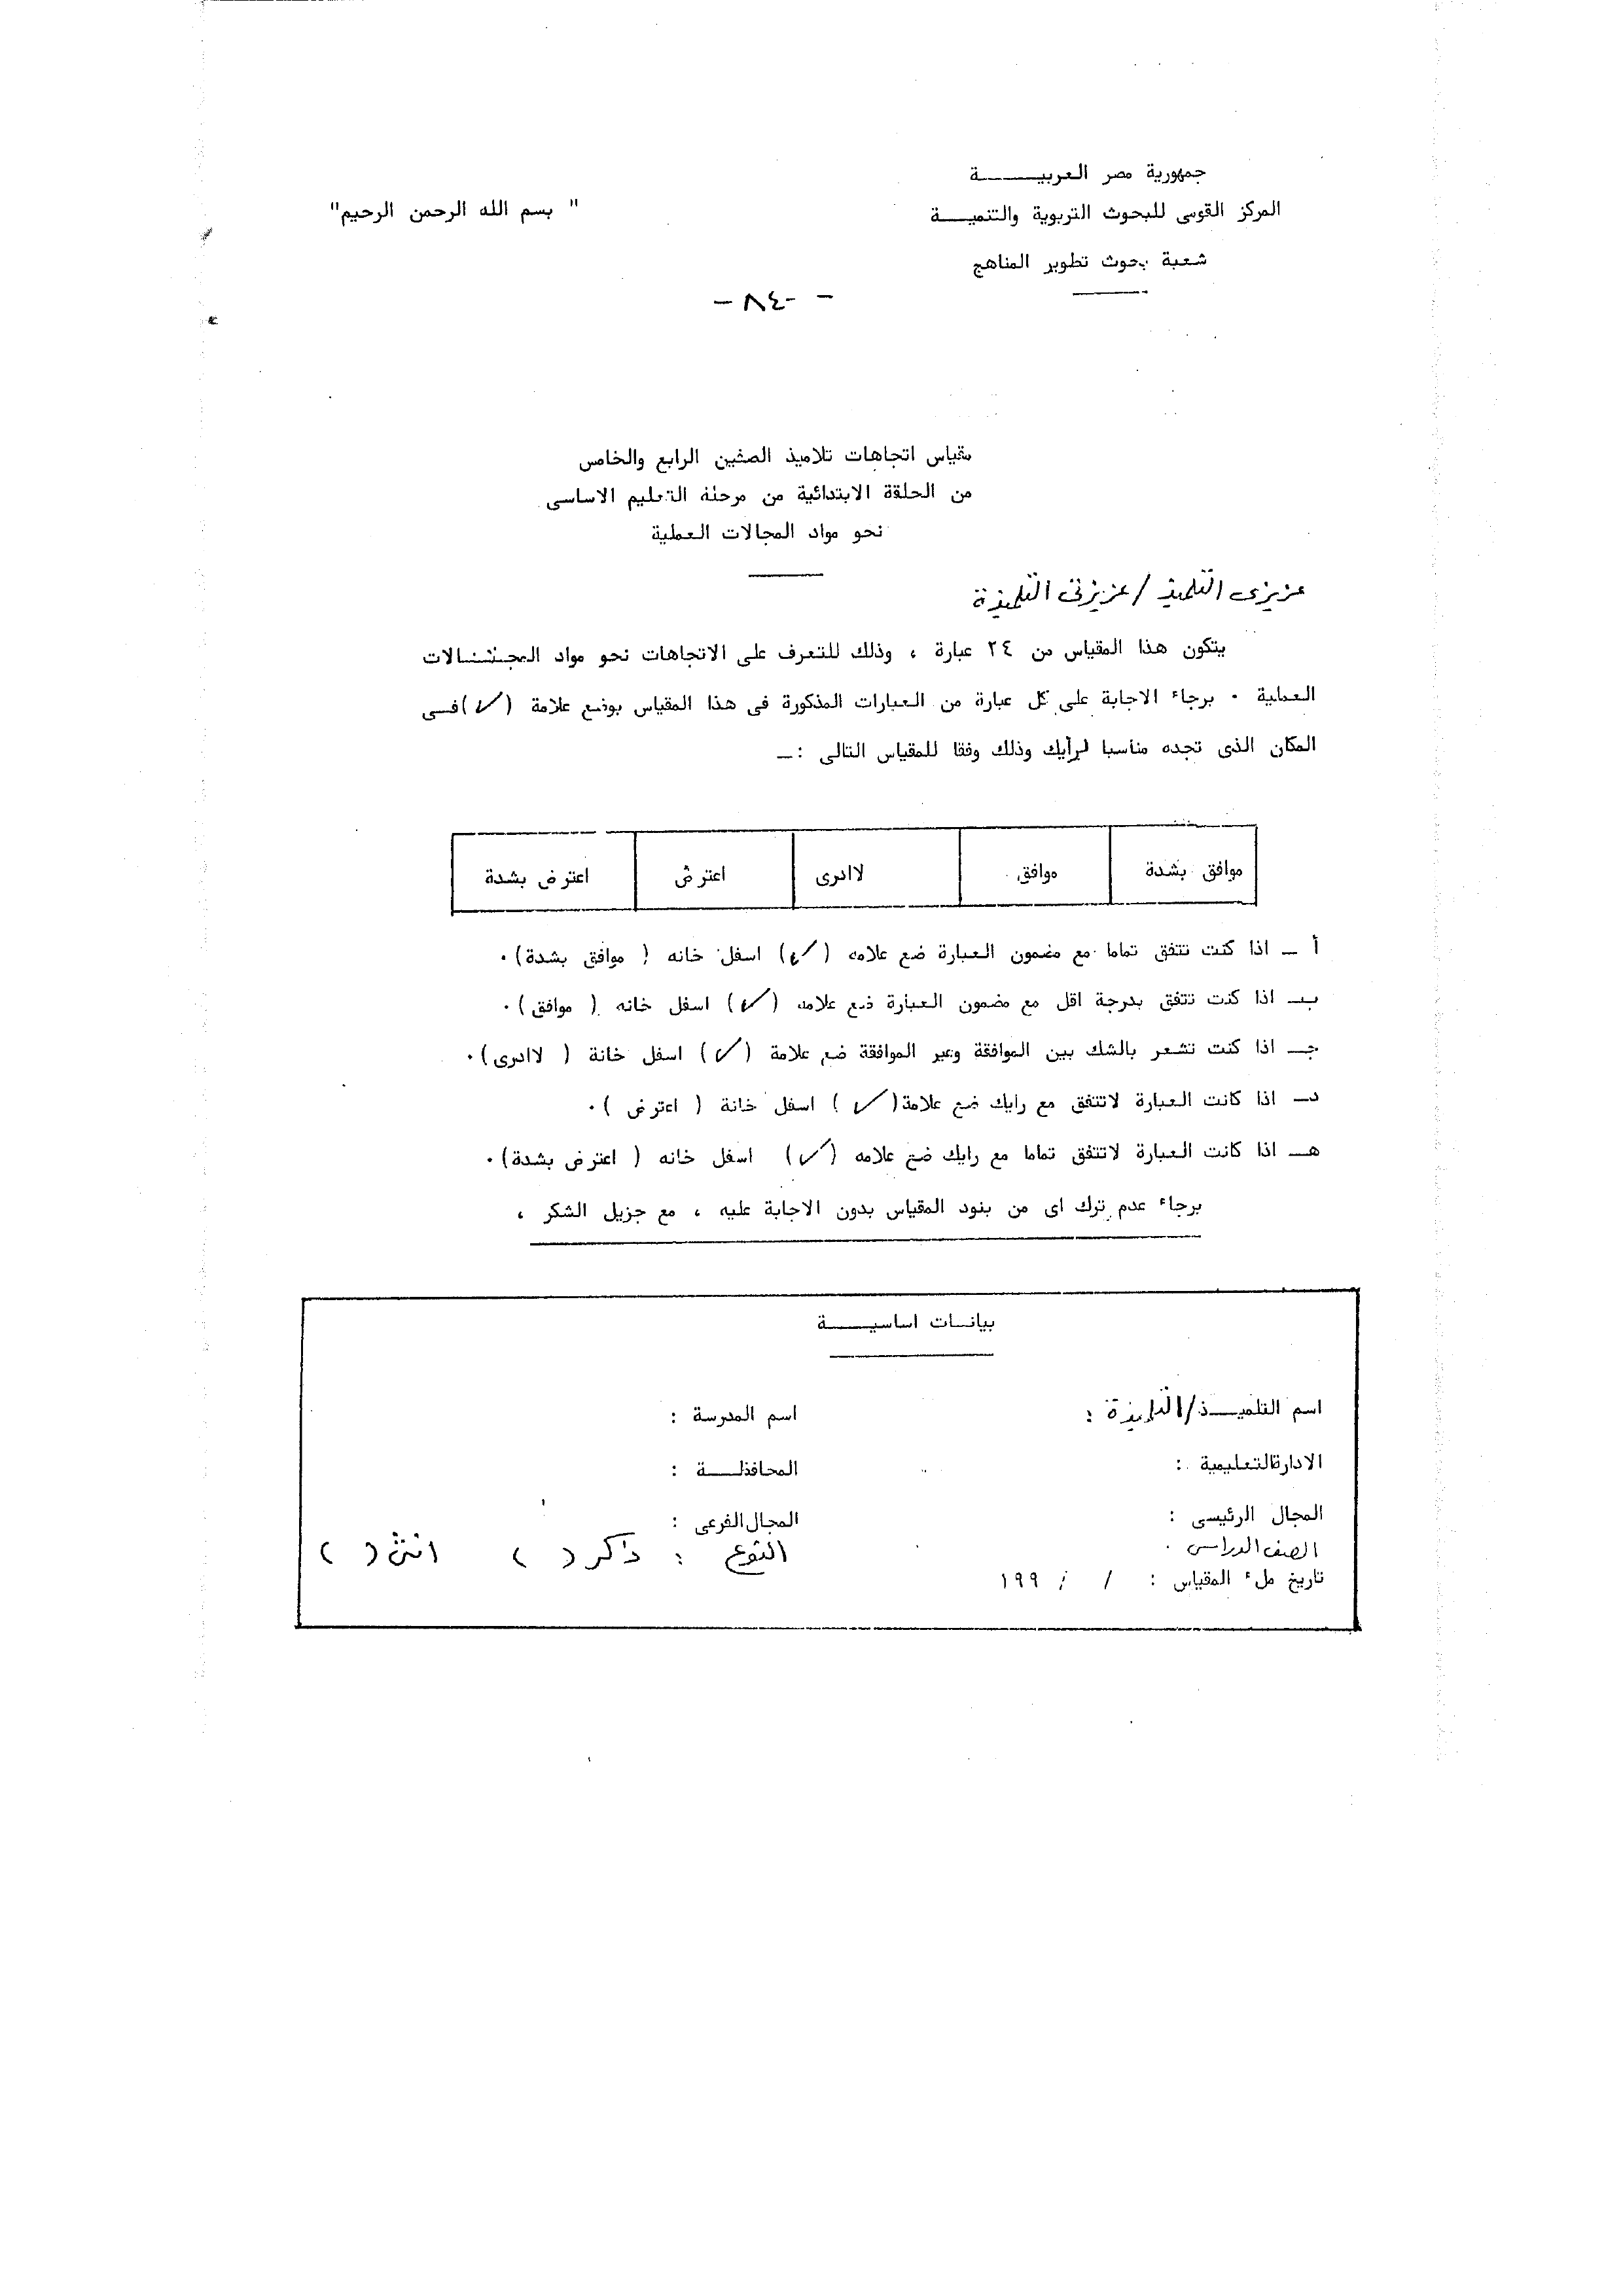 جمهورية مصر العربيـــــة
المركز القومى للبحوث التربوية والتنميـــة
" بسم الله الرحمن الرحيم"
شعبة بحوث تطوير المناهج
- ٨٤ -
مقياس اتجاهات تلاميذ الصفين الرابع والخامس
من الحلقة الابتدائية من مرحلة التعليم الاساسى
نحو مواد المجالات العملية
عزيزى التلميذ / عزيزتى التلميذة
يتكون هذا المقياس من ٢٤ عبارة ، وذلك للتعرف على الاتجاهات نحو مواد المجـــالات
العملية ٠ برجاء الاجابة على كل عبارة من العبارات المذكورة فى هذا المقياس بوضع علامة (✓) فــى
المكان الذى تجده مناسبا لرأيك وذلك وفقا للمقياس التالى :ـ
موافق بشدة موافق لاادرى اعترض اعترض بشدة
أ ـ اذا كنت تتفق تماما مع مضمون العبارة ضع علامه (✓) اسفل خانه ( موافق بشدة)٠
بـ اذا كنت تتفق بدرجة اقل مع مضمون العبارة ضع علامه (✓) اسفل خانه ( موافق)٠
جـ اذا كنت تشعر بالشك بين الموافقة وغير الموافقة ضع علامة (✓) اسفل خانة ( لاادرى)٠
دـ اذا كانت العبارة لاتتفق مع رايك ضع علامة (✓) اسفل خانة ( اعترض )٠
هـ اذا كانت العبارة لاتتفق تماما مع رايك ضع علامه (✓) اسفل خانه ( اعترض بشدة)٠
برجاء عدم ترك اى من بنود المقياس بدون الاجابة عليه ، مع جزيل الشكر ،
بيانات اساسيـــة
اسم التلميــذ/التلميذة : اسم المدرسة :
الادارةالتعليمية : المحافظـــة :
المجال الرئيسى : المجال الفرعى :
الصف الدراسى . النوع : ذكر ( ) انثى ( )
تاريخ ملء المقياس : / / ١٩٩